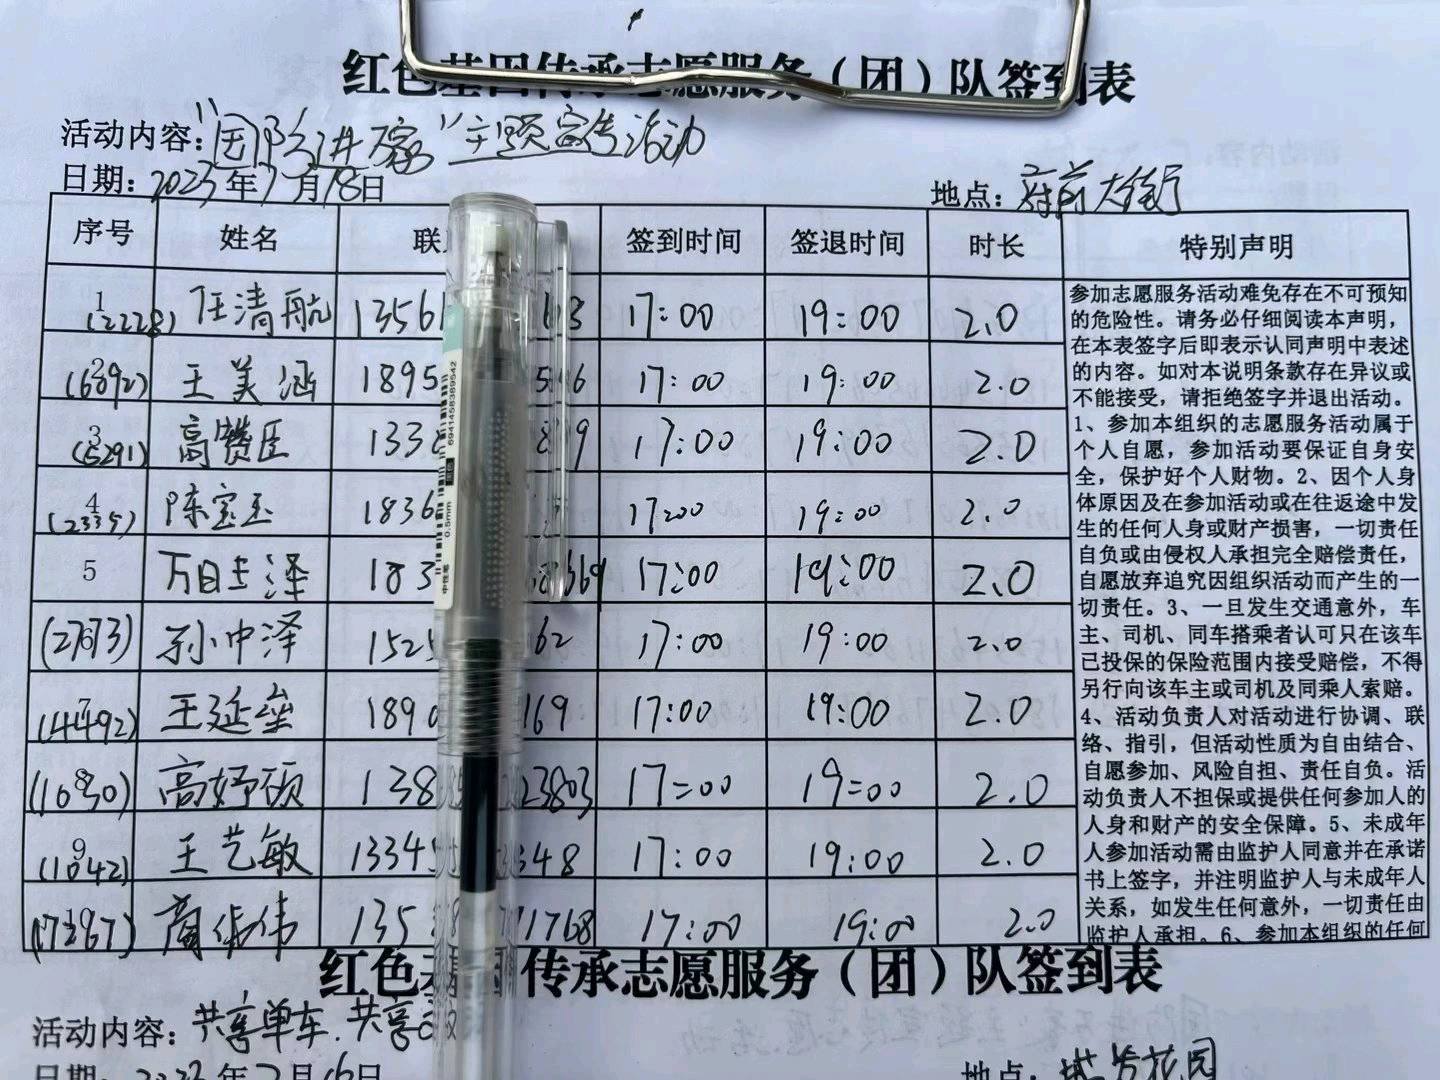 红色基因传承志愿服务（团）队签到表
活动内容："国防讲家"主题宣传活动
日期：2023年7月18日 地点：府前大街
序号 姓名 联 签到时间 签退时间 时长 特别声明
1 (2228) 任清航 1356 17:00 19:00 2.0
2 (6692) 王美涵 1895 17:00 19:00 2.0
3 (5291) 高赞臣 133 17:00 19:00 2.0
4 (2335) 陈宝玉 1836 17:00 19:00 2.0
5 泽 183 17:00 19:00 2.0
6 孙中泽 152 62 17:00 19:00 2.0
7 (4492) 王延垒 189 169 17:00 19:00 2.0
8 高妤颀 138 23803 17:00 19:00 2.0
9 (1042) 王艺敏 1334 348 17:00 19:00 2.0
伟 135 1768 17:00 19:00 2.0
参加志愿服务活动难免存在不可预知
的危险性。请务必仔细阅读本声明，
在本表签字后即表示认同声明中表述
的内容。如对本说明条款存在异议或
不能接受，请拒绝签字并退出活动。
1、参加本组织的志愿服务活动属于
个人自愿，参加活动要保证自身安
全，保护好个人财物。2、因个人身
体原因及在参加活动或在往返途中发
生的任何人身或财产损害，一切责任
自负或由侵权人承担完全赔偿责任，
自愿放弃追究因组织活动而产生的一
切责任。3、一旦发生交通意外，车
主、司机、同车搭乘者认可只在该车
已投保的保险范围内接受赔偿，不得
另行向该车主或司机及同乘人索赔。
4、活动负责人对活动进行协调、联
络、指引，但活动性质为自由结合、
自愿参加、风险自担、责任自负。活
动负责人不担保或提供任何参加人的
人身和财产的安全保障。5、未成年
人参加活动需由监护人同意并在承诺
书上签字，并注明监护人与未成年人
关系，如发生任何意外，一切责任由
监护人承担。6、参加本组织的任何
6941458389542
中性笔 0.5mm
红色基因传承志愿服务（团）队签到表
活动内容：共享单车.共享
日期：2023年7月16日 地点：花园